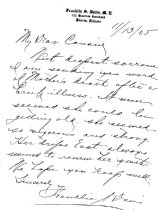 Franklin S. Davis, M. D.
Davis, Illinois
4/13/05
My Dear Cousin,
But deepest sorrow
I am sending you word
of Mother's death after a
illness. It never
seemed she could be
getting old, she seemed
so vigorous and strong
Her trip East always
seemed to renew her youth.
We hope you keep well
Sincerely,
Franklin S Davis